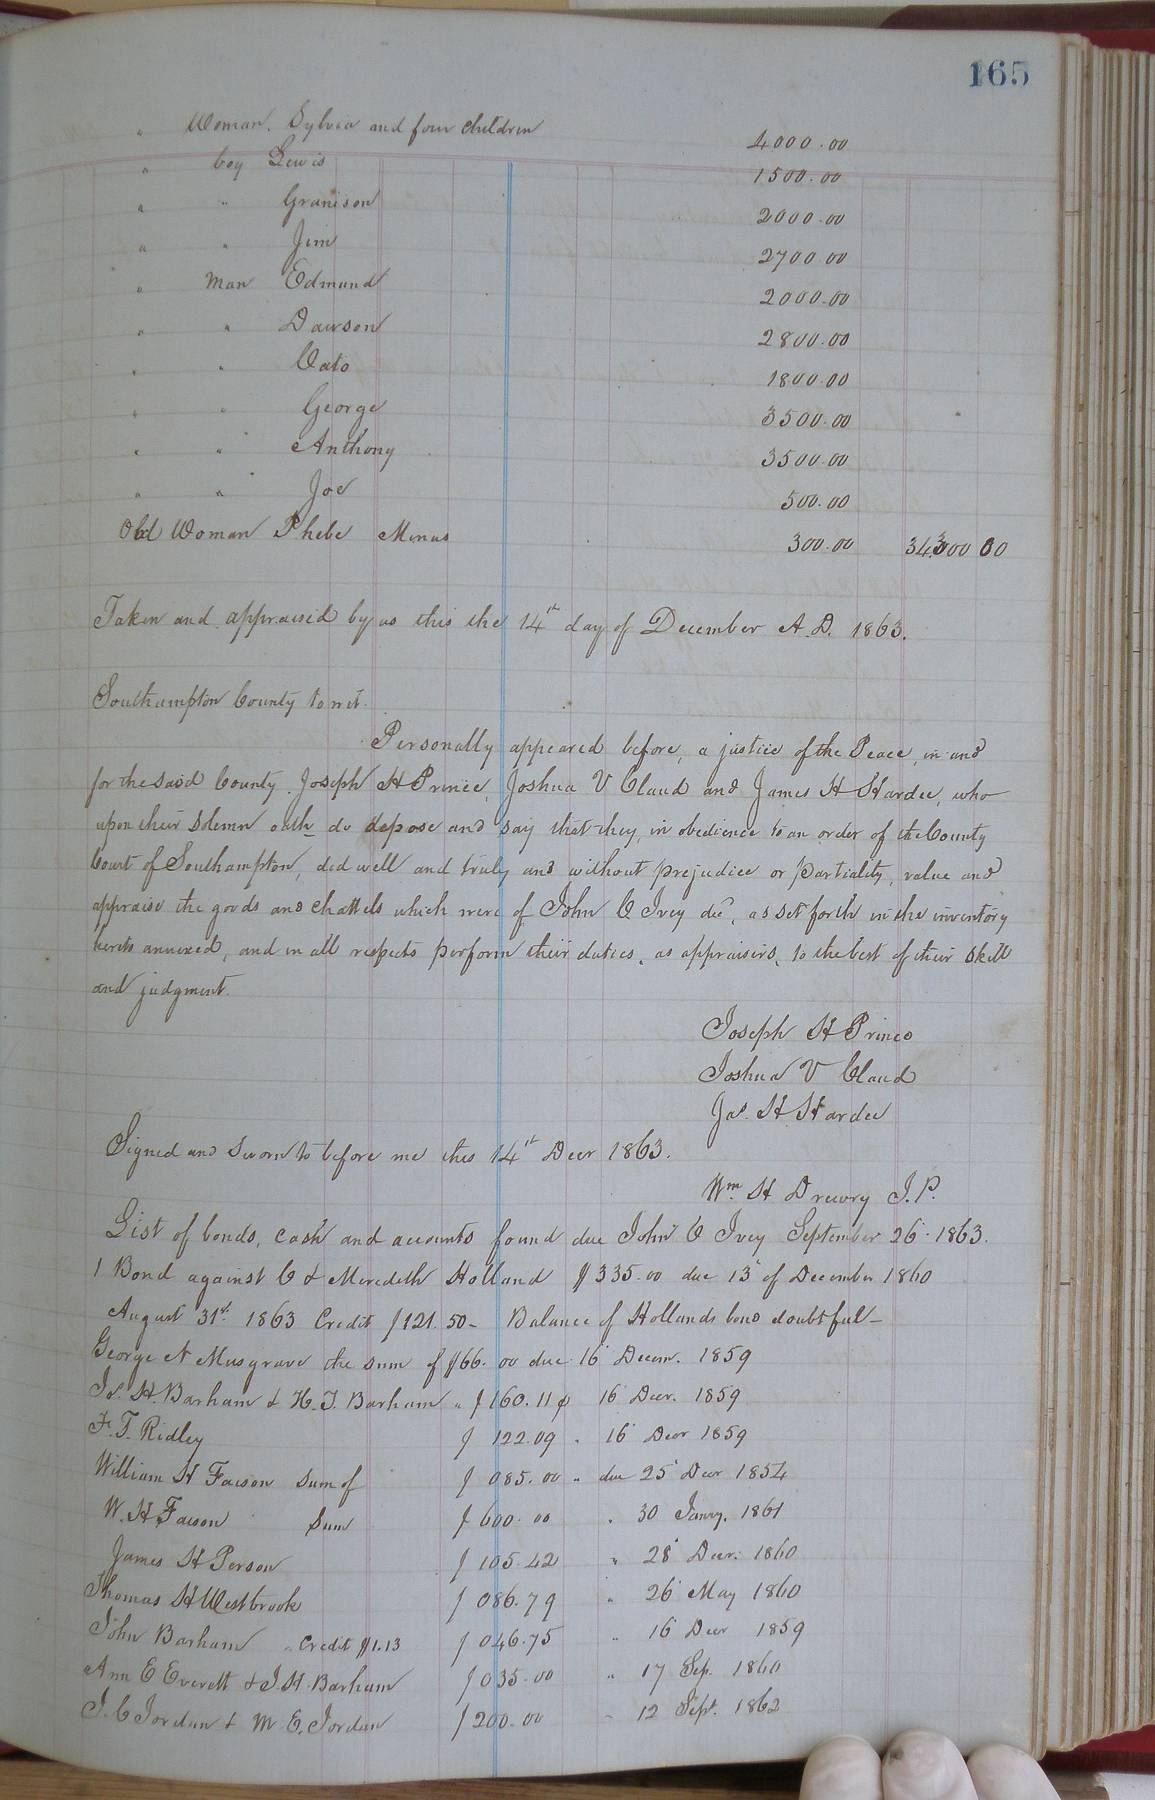 165
" Woman. Sylvia and four children 4000.00
" boy Lewis 1500.00
" " Granison 2000.00
" " Jim 2700.00
" Man Edmund 2000.00
" " Dawson 2800.00
" " Cato 1800.00
" " George 3500.00
" " Anthony 3500.00
" " Joe 500.00
Old Woman Phebe Minus 300.00 34300 00
Taken and appraised by us this the 14th day of December A.D. 1863.
Southampton County to wit.
Personally appeared before, a justice of the Peace, in and
for the said County. Joseph H Prince, Joshua V Claud and James H Hardee, who
upon their solemn oath do depose and say that they, in obedience to an order of the County
Court of Southampton, did well and truly and without prejudice or partiality, value and
appraise the goods and chattels which were of John C Ivey decd, as set forth in the inventory
hereto annexed, and in all respects perform their duties, as appraisers, to the best of their skill
and judgment.
Joseph H Prince
Joshua V Claud
Jas. H Hardee
Signed and sworn to before me this 14th Decr 1863.
Wm. H Drewry J.P.
List of bonds, cash and accounts found due John C Ivey September 26 1863.
1 Bond against C & Meredith Holland $335.00 due 13 of December 1860
August 31st 1863 Credit $121.50 - Balance of Hollands bond doubtful -
George N Musgrave the sum of $66.00 due 16 Decem. 1859
Js. H. Barham & H. T. Barham " $160.11 16 Decr. 1859
F. T. Ridley $122.09 " 16 Decr 1859
William H Faison Sum of $085.00 " due 25 Decr 1854
W. H Faison Sum $600.00 " 30 Janry. 1861
James H Person $105.42 " 28 Decr. 1860
Thomas H Westbrook $086.79 " 26 May 1860
John Barham " Credit $1.13 $046.75 " 16 Decr 1859
Ann E Everett & J. H. Barham $035.00 " 17 Sep. 1860
J. C Jordan & M. E. Jordan $200.00 " 12 Sept. 1862